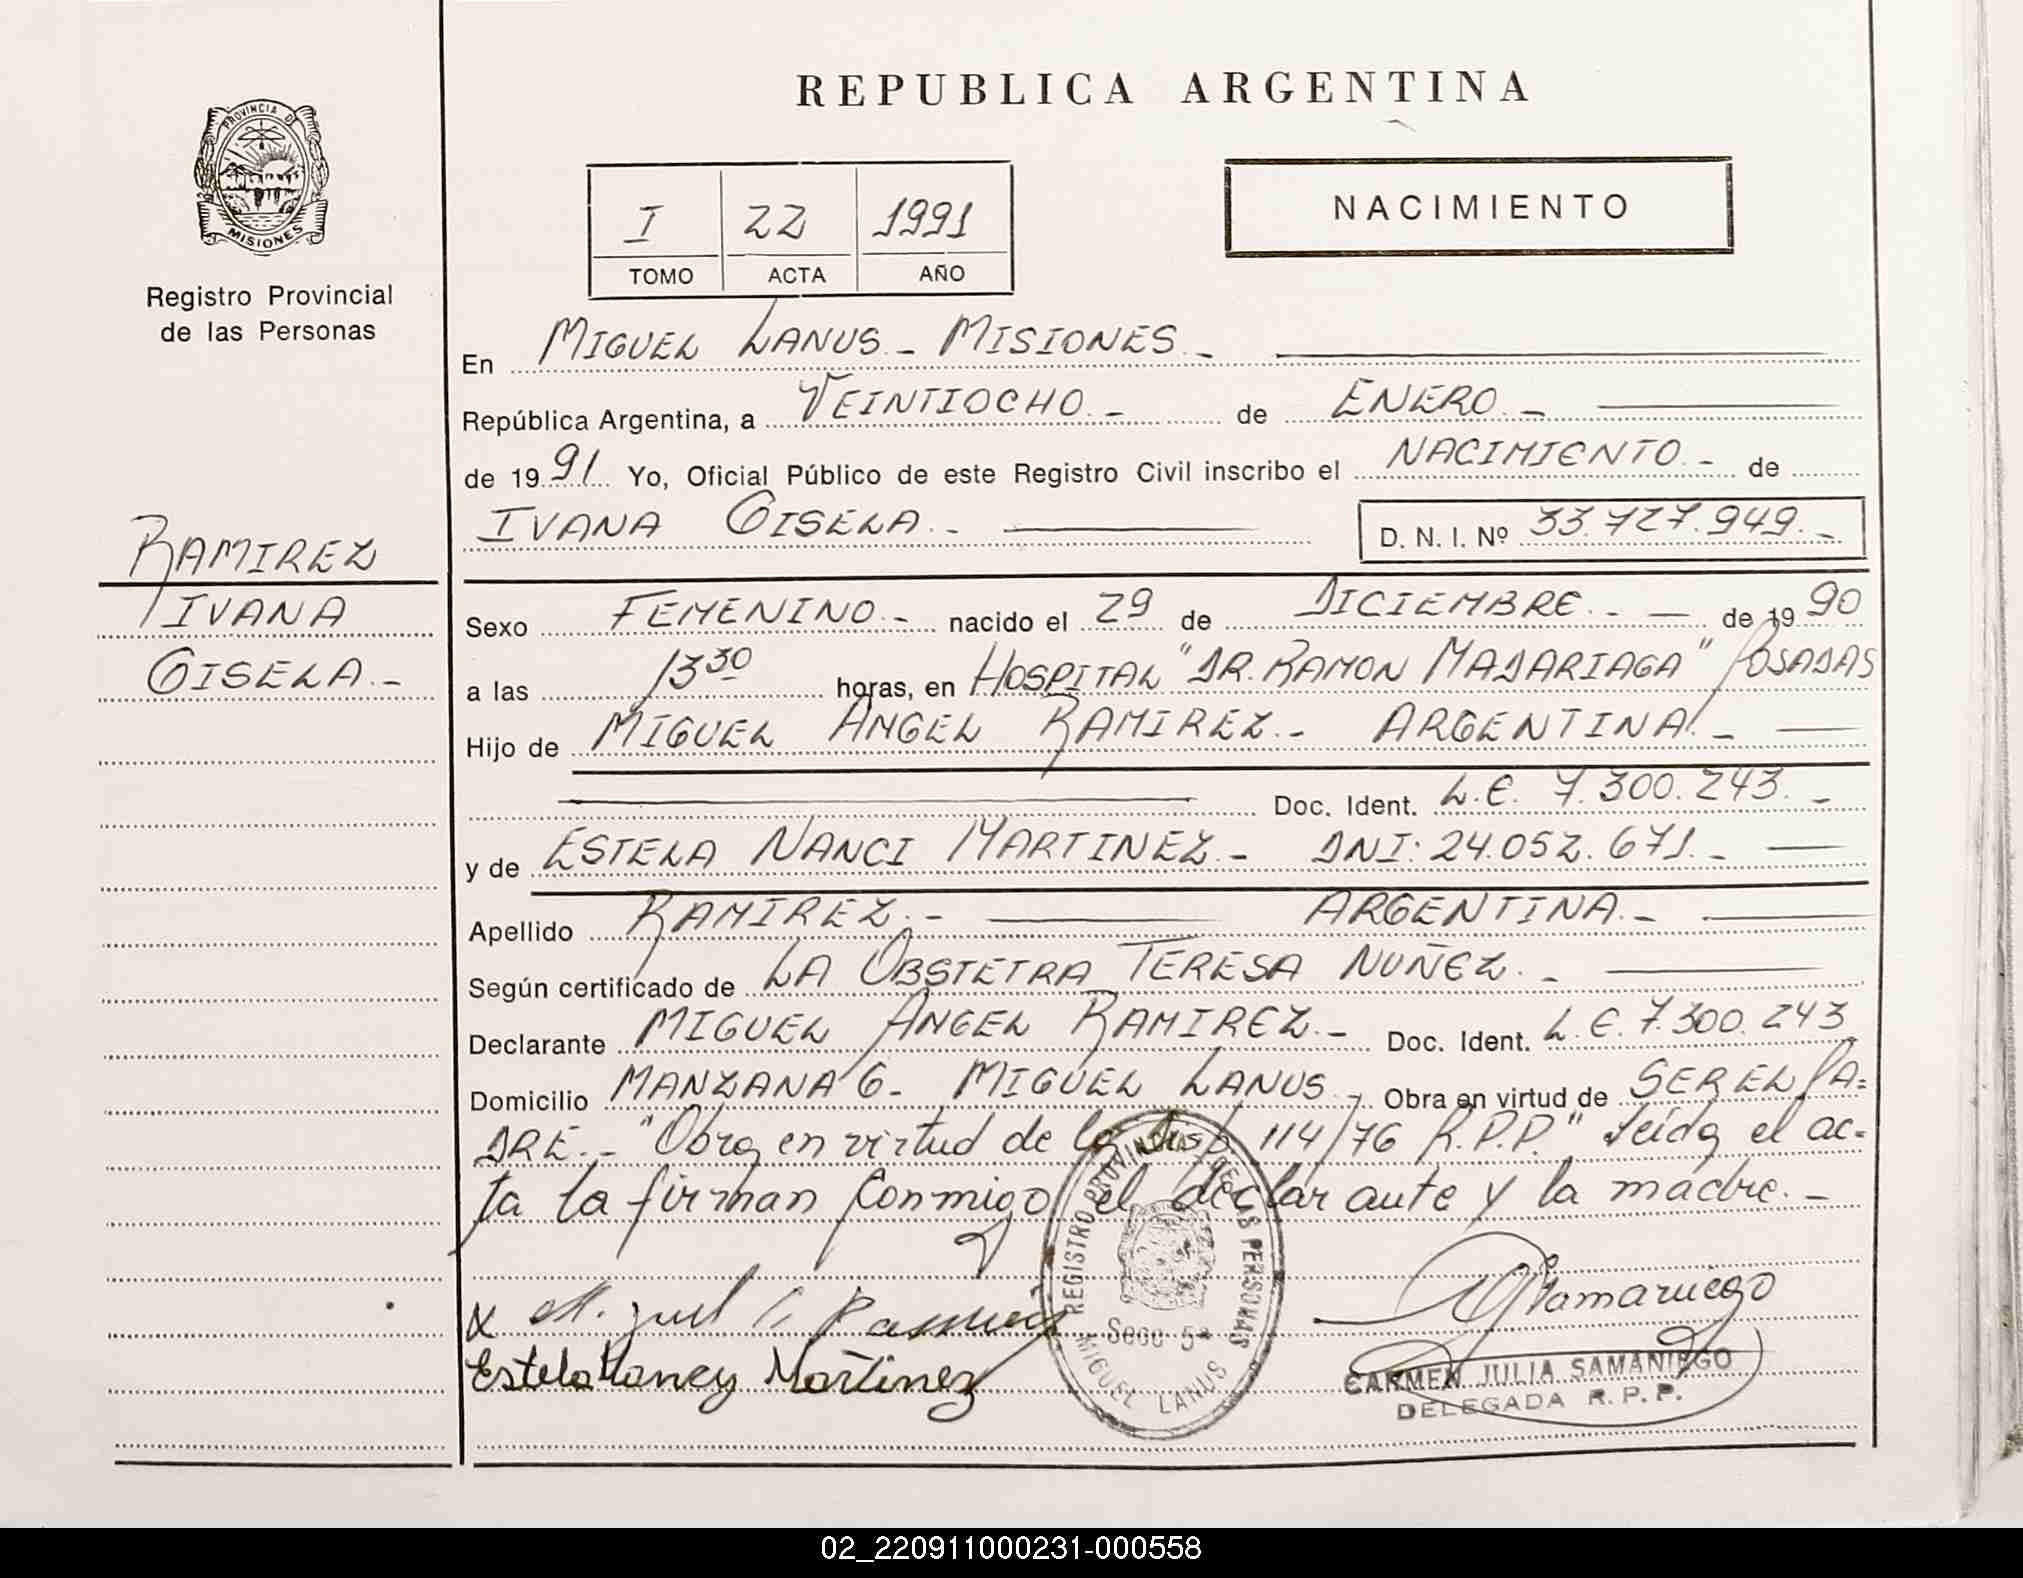 REPUBLICA ARGENTINA
PROVINCIA D
MISIONES
Registro Provincial
de las Personas
I 22 1991
TOMO ACTA AÑO
NACIMIENTO
En MIGUEL LANUS.- MISIONES.-
República Argentina, a VEINTIOCHO.- de ENERO.-
de 1991 Yo, Oficial Público de este Registro Civil inscribo el NACIMIENTO.- de
IVANA GISELA.- D. N. I. Nº 33.727.949.-
RAMIREZ
IVANA
GISELA.-
Sexo FEMENINO.- nacido el 29 de DICIEMBRE.- de 1990
a las 13³⁰ horas, en HOSPITAL "DR. RAMON MADARIAGA" POSADAS
Hijo de MIGUEL ANGEL RAMIREZ.- ARGENTINA.-
Doc. Ident. L.E. 7.300.243.-
y de ESTELA NANCI MARTINEZ.- DNI: 24.052.671.-
Apellido RAMIREZ.- ARGENTINA.-
Según certificado de LA OBSTETRA TERESA NUÑEZ.-
Declarante MIGUEL ANGEL RAMIREZ.- Doc. Ident. L.E. 7.300.243
Domicilio MANZANA 6- MIGUEL LANUS.- Obra en virtud de SER EL PA=
DRE.- "Obra en virtud de la Disp. 114/76 R.P.P." Leída el ac=
ta la firman conmigo el declarante y la madre.-
REGISTRO PROVINCIAL DE LAS PERSONAS
Secc 5ª
MIGUEL LANUS
Estela Nancy Martinez
CARMEN JULIA SAMANIEGO
DELEGADA R.P.P.
02_220911000231-000558